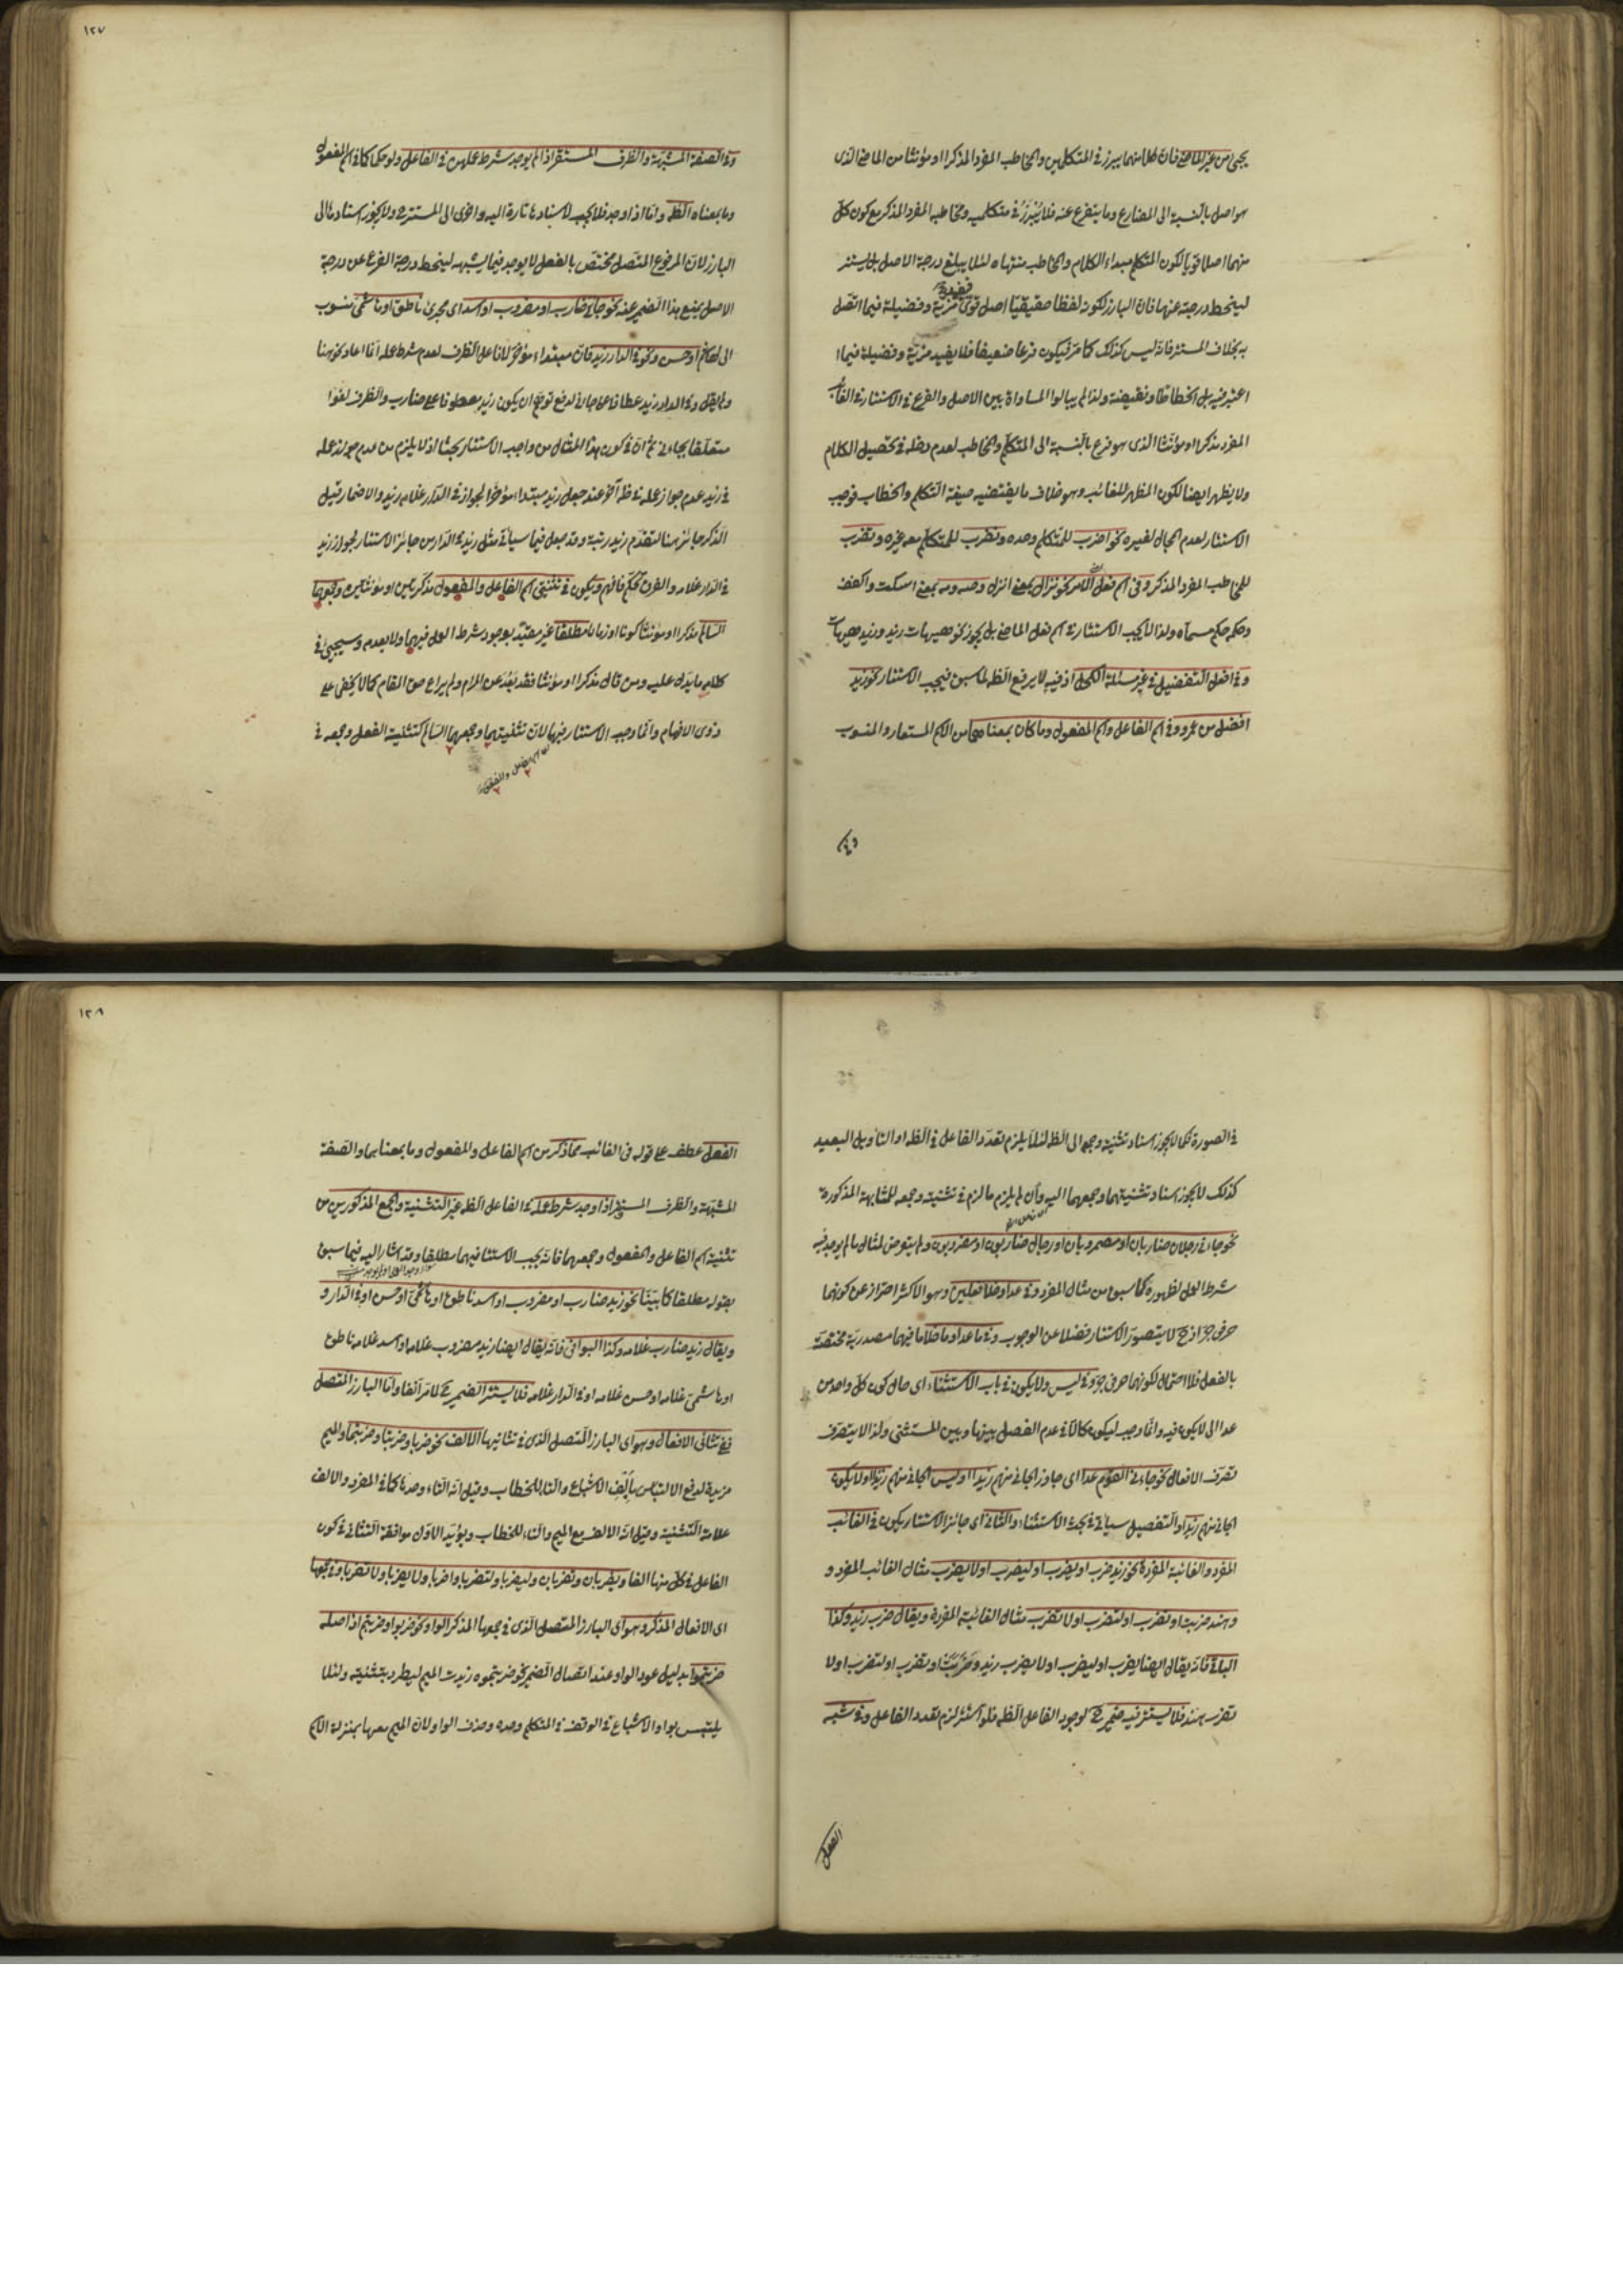 يجئ من غير الماضي فان كلا منهما يبرز في المتكلمين والمخاطب المفرد المذكر او مؤنثا من الماضي الذى
هو اصل بالنسبة الى المضارع وما يتفرع عنه فلا يبرز في متكلميه ومخاطبه المفرد المذكر مع كون كل
منهما اصلا قويا لكون المتكلم مبداء الكلام والمخاطب منتهاه لئلا يبلغ درجة الاصل بل يستتر
لينحط درجته عنها فان البارز لكونه لفظا حقيقيا اصل قوى مزية وفضيلة فيما اتصل
به بخلاف المستتر فانه ليس كذلك كما مر فيكون فرعا ضعيفا فلا يفيد مزية وفضيلة فيما
اعتبر فيه بل انحطاطا ونقيضة ولذا لم يبالوا المساواة بين الاصل والفرع في الاستتار في الغائب
المفرد مذكرا او مؤنثا الذى هو فرع بالنسبة الى المتكلم والمخاطب لعدم دخله في تحصيل الكلام
ولا يظهر ايضا لكون المظهر للغائب وهو خلاف ما يقتضيه صيغة التكلم والخطاب فوجب
الاستتار لعدم المجال لغيره نحو اضرب للمتكلم وحده ونضرب للمتكلم مع غيره وتضرب
للمخاطب المفرد المذكر وفى اسم فعل الامر نحو نزال بمعنى انزل وصه ومه بمعنى اسكت واكفف
وحكمه حكم مسماه ولذا لا يجب الاستتار في اسم فعل الماضي بل يجوز نحو هيهات زيد وزيد هيهات
وفي افعل التفضيل في غير مسئلة الكحل اذ فيه لا يرفع الظه لما سبق فيجب الاستتار نحو زيد
افضل من عمرو وفي اسم الفاعل واسم المفعول وما كان بمعناهما من الاسم المستعار والمنسوب
وفي الصفة المشبهة والظرف المستقر اذا لم يوجد شرط عملهن في الفاعل ولو حكما كما في اسم المفعول
وما بمعناه الظه واما اذا وجد فلا يجب لاسنادها تارة اليه واخرى الى المستتر ولا يجوز اسنادها الى
البارز لان المرفوع المتصل مختص بالفعل لا يوجد فيما يشبهه لينحط درجة الفرع عن درجة
الاصل بمنع هذا الضمير عنه نحو جائنى ضارب او مضروب او اسد اى مجرئ ناطق او هاشمى منسوب
الى هاشم او حسن ونحو في الدار زيد فان مبتداء مؤخر لا فاعل الظرف لعدم شرط عمله انما اعاد نحو هنا
ولم يقل وفي الدار زيد عطفا على جائنى لدفع توهم ان يكون زيد معطوفا على ضارب والظرف لغوا
متعلقا بجاءنى ثم ان في كون هذا المثال من واجب الاستتار بحثا اذ لا يلزم من عدم جواز عمله
في زيد عدم جواز عمله في ظه آخر عند جعل زيد مبتداء مؤخرا لجواز في الدار غلامه زيد والاضمار قبل
الذكر جائز هنا لتقدم زيد رتبة وقد جعل فيما سيأتى مثل زيد في الدار من جائز الاستتار لجواز زيد
في الدار غلامه والفرق تحكم فافهم ويكون في تثنيتى اسم الفاعل والمفعول مذكرين او مؤنثين وجمعهما
السالم مذكرا او مؤنثا كونا او زمانا مطلقا غير مقيد بوجود شرط العمل فيهما ولا بعدمه وسيجيئ في
كلامه ما يدل عليه ومن قال مذكرا او مؤنثا فقد بعد عن المرام ولم يراع حق المقام كما لا يخفى على
ذوى الافهام وانما وجب الاستتار فيها لان تثنيتهما وجمعهما السالم كتثنية الفعل وجمعه في
١٢٧
في الصورة فكما لا يجوز اسناد تثنيته وجمعه الى الظه لئلا يلزم تعدد الفاعل في الظه او التأويل البعيد
كذلك لا يجوز اسناد تثنيتهما وجمعهما اليه وان لم يلزم ما لزم في تثنيته وجمعه للمشابهة المذكورة
نحو جاءنى رجلان ضاربان او مضروبان او رجال ضاربون او مضروبون ولم يتعرض لمثال ما لم يوجد فيه
شرط العمل لظهوره مما سبق من مثال المفرد وفي عدا وخلا فعلين وهو الاكثر احتراز عن كونهما
حرفى جر اذ ح لا يتصور الاستتار فضلا عن الوجوب وفي ما عدا وما خلا ما فيهما مصدرية مختصة
بالفعل فلا احتمال لكونهما حرفى جر وفي ليس ولا يكون في باب الاستثناء اى حال كون كل واحد من
عدا الى لا يكون فيه وانما وجب ليكون كالا في عدم الفصل بينها وبين المستثنى ولذا لا يتصرف
تصرف الافعال نحو جاءنى القوم عدا اى جاوز الجائى منهم زيدا او ليس الجائى منهم زيدا او لا يكون
الجائى منهم زيدا والتفصيل سيأتى في بحث الاستثناء والثانى اى جائز الاستتار يكون في الغائب
المفرد والغائبة المفردة نحو زيد ضرب او يضرب او ليضرب او لا يضرب مثال الغائب المفرد و
وهند ضربت او تضرب او لتضرب او لا تضرب مثال الغائبة المفردة ويقال ضرب زيد وكذا
الباقى فانه يقال ايضا يضرب او ليضرب او لا يضرب زيد وضربت او تضرب او لتضرب او لا
تضرب هند فلا يستتر فيه ضمير ح لوجود الفاعل الظه فلو استتر لزم تعدد الفاعل وفي شبه
الفعل
الفعل عطف على قوله فى الغائب مما ذكر من اسم الفاعل والمفعول وما بمعناهما والصفة
المشبهة والظرف المستقر اذا وجد شرط عمله في الفاعل الظه غير التثنية والجمع المذكورين من
تثنية اسم الفاعل والمفعول وجمعهما فانه يجب الاستتار فيهما مطلقا وقد اشار اليه فيما سبق
بقوله مطلقا كما بينا نحو زيد ضارب او مضروب او اسد ناطق او هاشمى او حسن او في الدار و
ويقال زيد ضارب غلامه وكذا البواقى فانه يقال ايضا زيد مضروب غلامه او اسد غلامه ناطق
او هاشمى غلامه او حسن غلامه او في الدار غلامه فلا يستتر الضمير ح لما مر آنفا واما البارز المتصل
ففي تثانى الافعال وهو اى البارز المتصل الذى في تثانيها الالف نحو ضربا وضربتا وضربتما والميم
مزيدة لدفع الالتباس بالف الاشباع والتاء للخطاب وقيل انه التاء وحدها كما في المفرد والالف
علامة التثنية وقيل انه الالف مع الميم والتاء للخطاب ويؤيد الاول موافقة التثانى في كون
الفاعل في كل منها الفا ويضربان وتضربان وليضربا ولتضربا واضربا ولا يضربا ولا تضربا وفي جمعها
اى الافعال المذكر وهو اى البارز المتصل الذى في جمعها المذكر الواو نحو ضربوا وضربتم اذ اصله
ضربتموا بدليل عود الواو عند اتصال الضمير نحو ضربتموه زيدت الميم ليطرد بتثنيته ولئلا
يلتبس بواو الاشباع في الوقف في المتكلم وحده وحذف الواو لان الميم معها بمنزلة الاسم
١٢٨